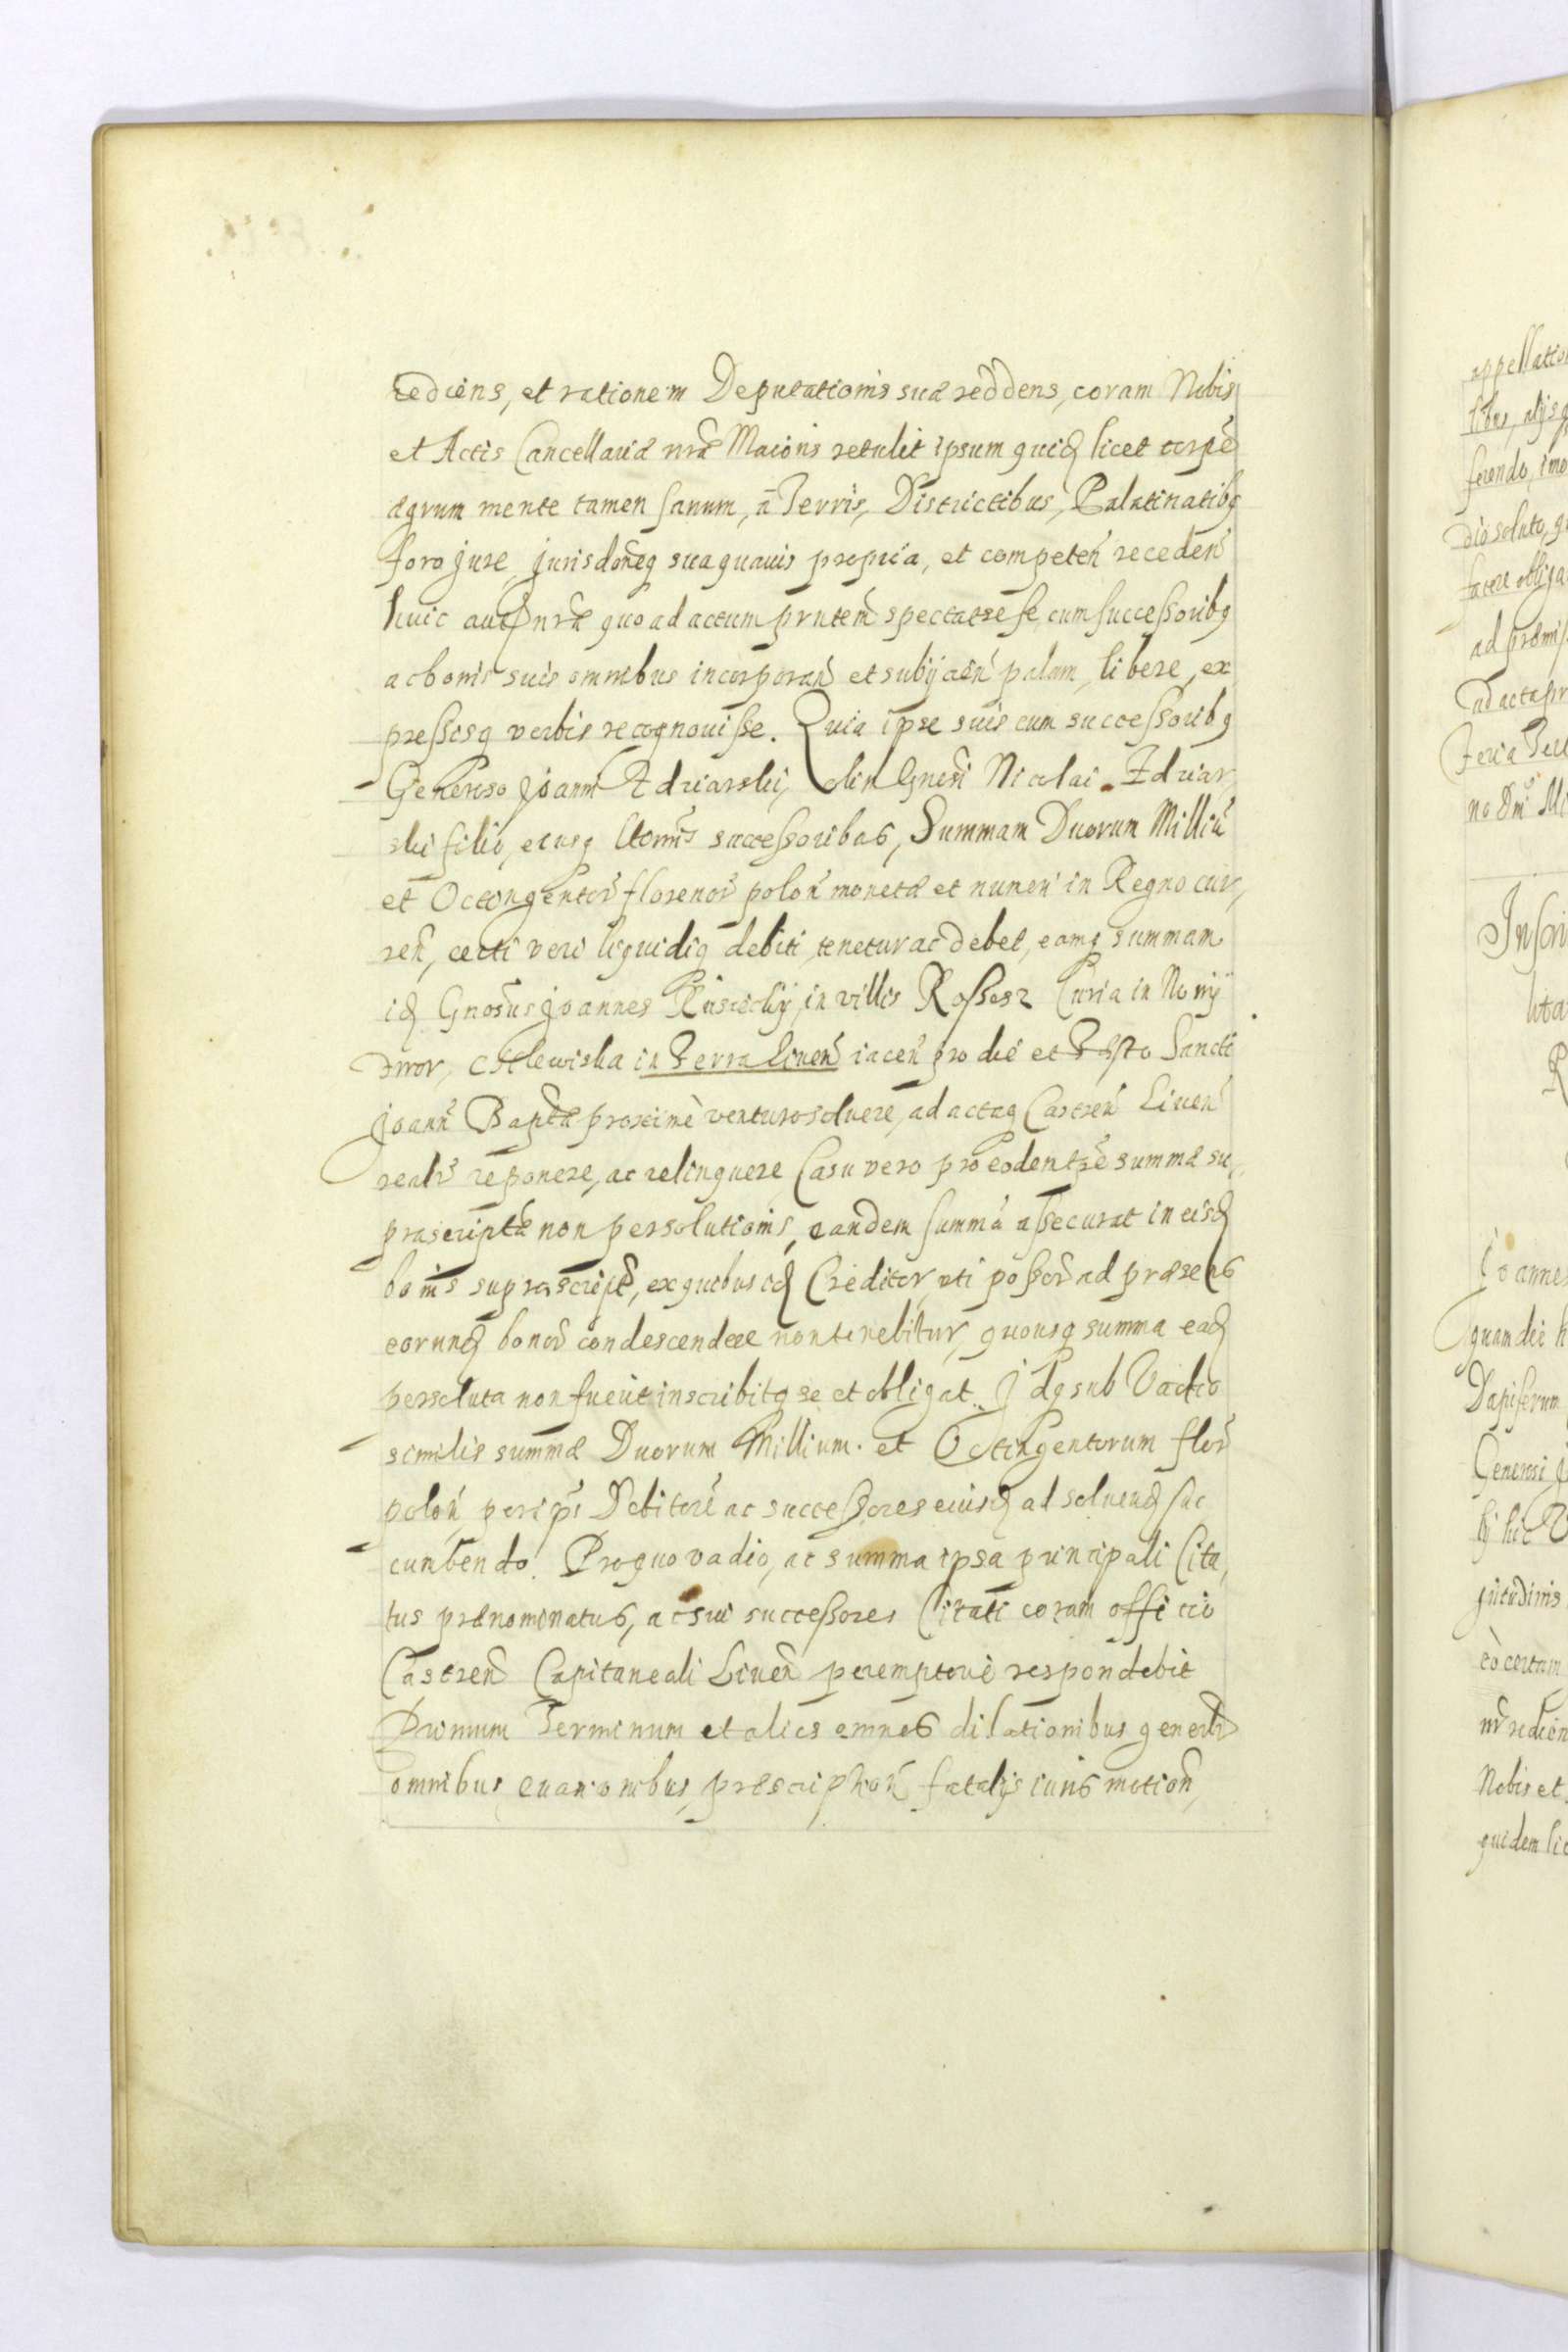 rediens, et rationem Deputationis suæ reddens, coram Nobis
et Actis Cancellariæ nræ Maioris retulit ipsum quidẽ licet corpẽ
ægrum mente tamen sanum, à Terris, Districtibus, Palatinatibq
foro jure, jurisdoneq sua quavis propria, et competeñ recedeñ
huic autẽ nræ quo ad actum pruteñ spectat sese cum successoribq
ac bonis suis omnibus incorporañ et subijcieñ palam, libere, ex
pressisq verbis recognovisse. Quia ipse suis cum successoribq
Generoso Joanni Zdziarski, olim Gnesi Nicolai Zdziar,
ski filio, eiusq ltomis successoribus, Summam Duorum Milliũ
et Octongentor florenor poloñ monetæ et numeri in Regno cur,
reñ, certi veri liquidiq debiti, tenetur ac debet, eamq summam
idẽ Gnosus Joannes in villis Rossosz Curia in Nowÿ
Dwor, in Terra Liveñ iaceñ pro die et Festo Sancti
Joann Baptæ proxime venturo solvere, ad actaq Castreñ Liveñ
realr reponere, ac relinquere Casu vero pro eodem summæ su,
prascriptæ non persolutionis, eandem summã assecurat in eisdẽ
bonis suprascript, ex quibus idẽ Creditor, uti possor ad præsens
eorundẽ bonor condescendere non tenebitur, quousq summa eadẽ
persoluta non fuerit inscribitq se et obligat. Idq sub Vadio
similis summæ Duorum Millium. et Octingentorum flor
poloñ, per ips Debitorẽ ac successores eiusdẽ ad solvendẽ suc
cumbendo. Pro quo vadio, ac summa ipsa principali Cita,
tus prænominatus, ac sui successores Citati coram officio
Castreñ Capitaneali Liveñ peremptorie respondebit
Primum Terminum et alios omnes dilationibus generlr
omnibus evasionibus, præscriptioñ fatalijs iuris motioñ,
appellatio
ferendo, imo
dio soluto, q
facere obliga
ad præmis
Feria Ter
no Dni Mi
Inscri
lita
R
Joannes
quam dii h
Dapiferum
Generosi J
eò certam
nr redien
Nobis et
quidem lic